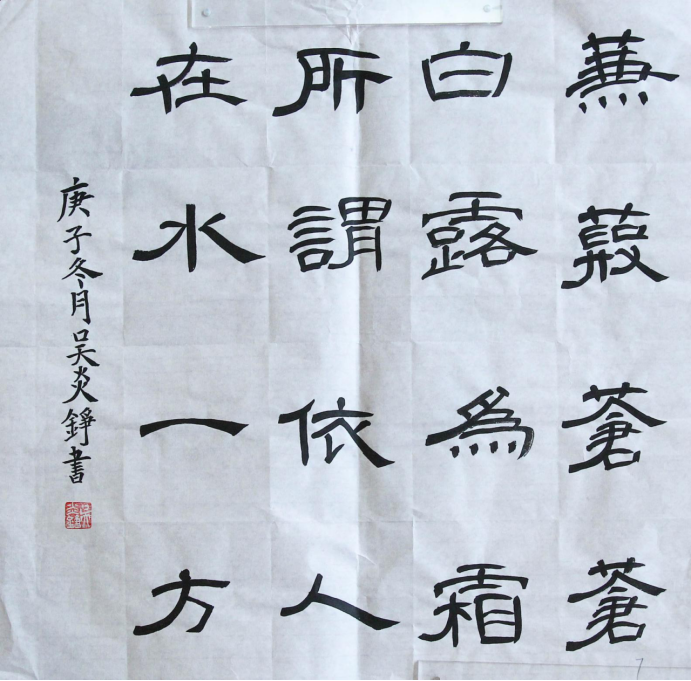 蒹葭蒼蒼
白露爲霜
所謂依人
在水一方
庚子冬月吴炎錚書